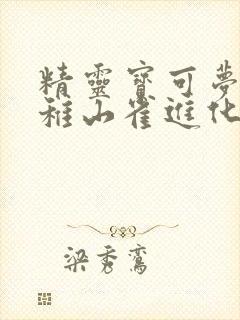 精靈寶可夢
稚山雀進化
梁秀鸞